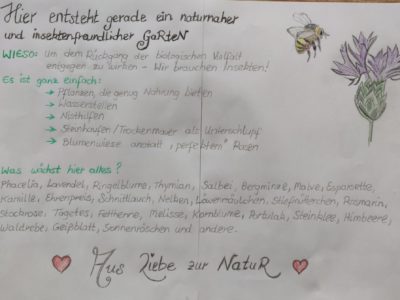 Hier entsteht gerade ein naturnaher
und insektenfreundlicher GaRteN
WIESO: Um dem Rückgang der biologischen Vielfalt
entgegen zu wirken - Wir brauchen Insekten!
Es ist ganz einfach:
→ Pflanzen, die genug Nahrung bieten
→ Wasserstellen
→ Nisthilfen
→ Steinhaufen/Trockenmauer als Unterschlupf
→ Blumenwiese anstatt „perfektem" Rasen
Was wächst hier alles?
Phacelia, Lavendel, Ringelblume, Thymian, Salbei, Bergminze, Malve, Esparsette,
Kamille, Ehrenpreis, Schnittlauch, Nelken, Löwenmäulchen, Stiefmütterchen, Rosmarin,
Stockrose, Tagetes, Fetthenne, Melisse, Kornblume, Portulak, Steinklee, Himbeere,
Waldrebe, Geißblatt, Sonnenröschen und andere.
Aus Liebe zur NatuR